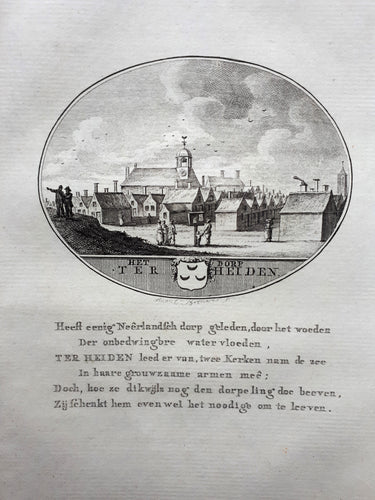 HET DORP
TER HEIDEN.
Heeft eenig Neêrlandsch dorp geleden, door het woeden
Der onbedwingbre watervloeden,
TER HEIDEN leed er van, twee Kerken nam de zee
In haare grouwzaame armen meê;
Doch, hoe ze dikwijls nog den dorpeling doe beeven,
Zij schenkt hem evenwel het noodige om te leeven.